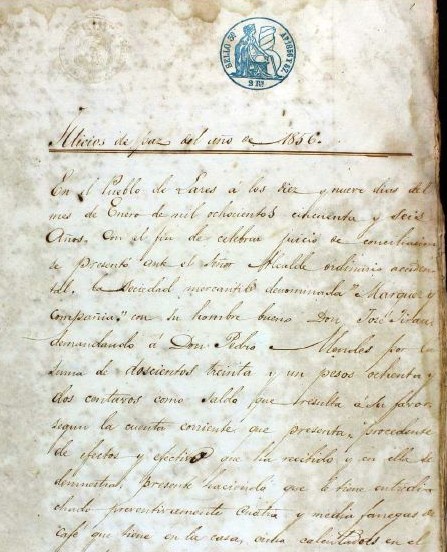 SELLO 3º
AÑ. 1856 Y 57.
2 Rs
Juicios de paz del año de 1856.
En el Pueblo de Lares á los diez y nueve dias del
mes de Enero de mil ochocientos cincuenta y seis
Años. Con el fin de celebrar juicio de conciliacion
se presentó ante el Señor Alcalde ordinario acciden
tal, la Sociedad mercantil denominada "Marquez y
Compañia," con su hombre bueno Don José
demandando á Don Pedro Morales por la
suma de doscientos treinta y un pesos ochenta y
dos centavos como saldo que resulta á su favor
segun la cuenta corriente que presenta, procedente
de efectos y efectivo que ha recibido y en ella se
demuestra, presente haciendo que le tiene entredi
chado preventivamente cuatro y media fanegas de
Café que tiene en la casa, en el